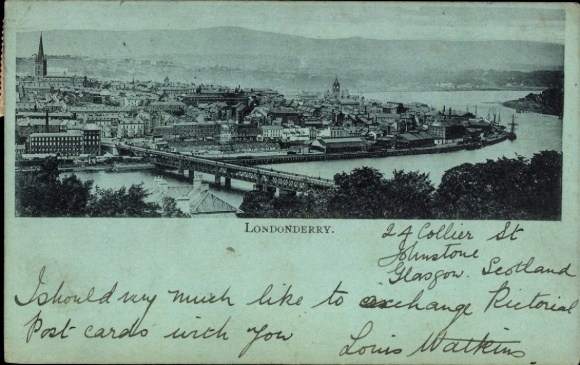 LONDONDERRY.
24 Collier St
Johnstone
Glasgow. Scotland
I should very much like to exchange Pictorial
Post cards with you
Louis Watkins